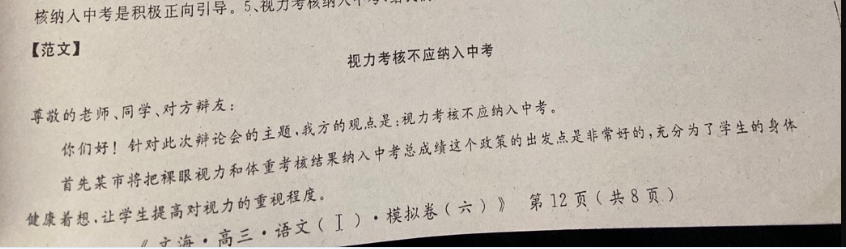 核纳入中考是积极正向引导。5、视力考核纳入中考
【范文】
视力考核不应纳入中考
尊敬的老师、同学、对方辩友:
你们好!针对此次辩论会的主题,我方的观点是:视力考核不应纳入中考。
首先某市将把裸眼视力和体重考核结果纳入中考总成绩这个政策的出发点是非常好的,充分为了学生的身体
健康着想,让学生提高对视力的重视程度。
《文海·高三·语文(Ⅰ)·模拟卷(六)》 第12页(共8页)